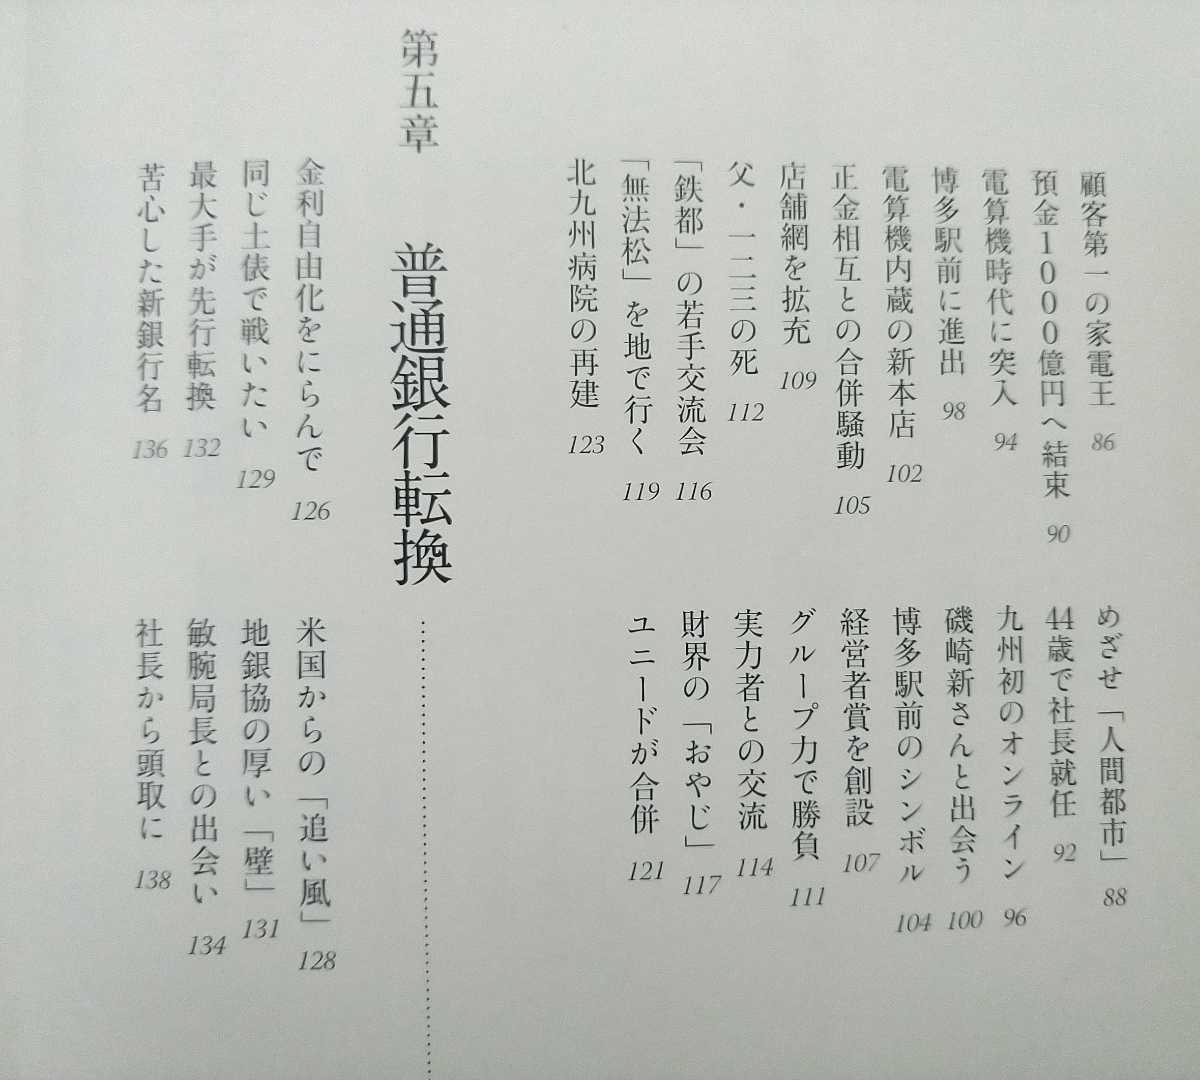 顧客第一の家電王 86
めざせ「人間都市」 88
預金1000億円へ結束 90
44歳で社長就任 92
電算機時代に突入 94
九州初のオンライン 96
博多駅前に進出 98
磯崎新さんと出会う 100
電算機内蔵の新本店 102
博多駅前のシンボル 104
正金相互との合併騒動 105
経営者賞を創設 107
店舗網を拡充 109
グループ力で勝負 111
父・一二三の死 112
実力者との交流 114
「鉄都」の若手交流会 116
財界の「おやじ」 117
「無法松」を地で行く 119
ユニードが合併 121
北九州病院の再建 123
第五章 普通銀行転換
金利自由化をにらんで 126
米国からの「追い風」 128
同じ土俵で戦いたい 129
地銀協の厚い「壁」 131
最大手が先行転換 132
敏腕局長との出会い 134
苦心した新銀行名 136
社長から頭取に 138